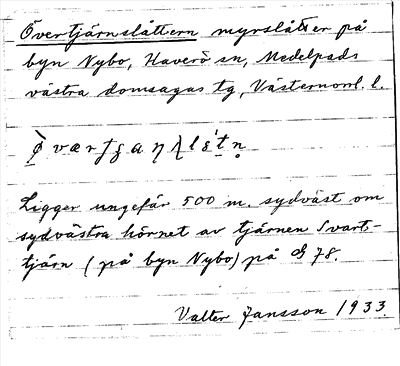 Övertjärnslåttern myrslåtter på
byn Nybo, Haverö sn, Medelpads
västra domsagas tg, Västernorrl. l.
Ligger ungefär 500 m. sydväst om
sydvästra hörnet av tjärnen Svart-
tjärn (på byn Nybo) på 78.
Valter Jansson 1933.